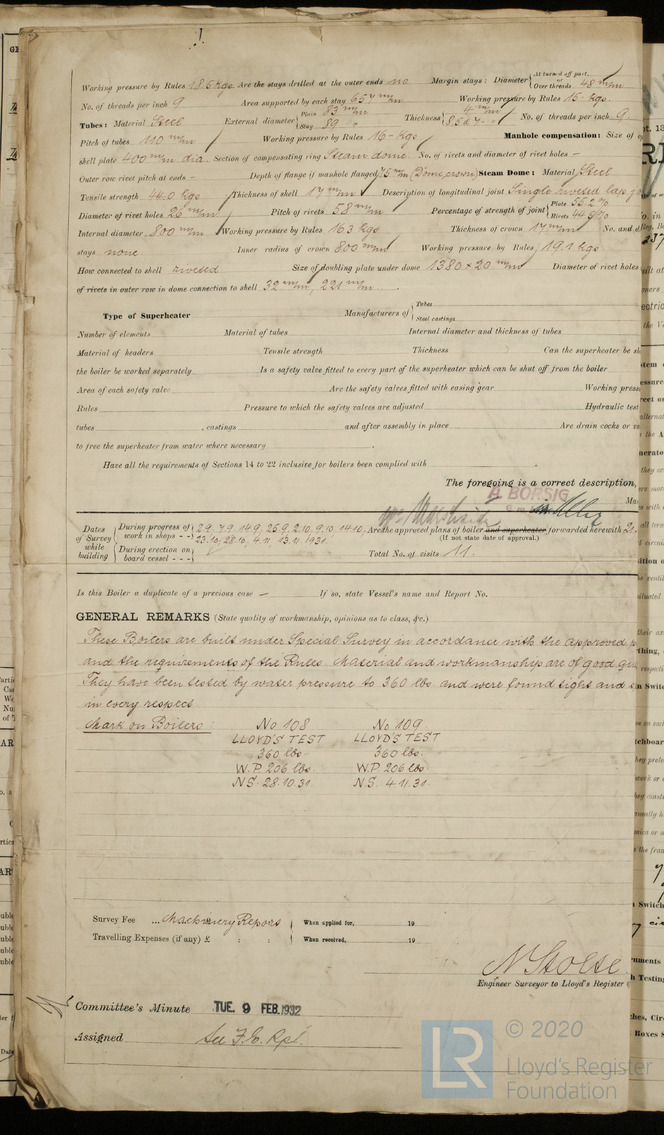 Working pressure by Rules 18.6 kgs Are the stays drilled at the outer ends no Margin stays: Diameter { At turned off part, Over threads 48 m/m
No. of threads per inch 9 Area supported by each stay Working pressure by Rules 15- kgs.
Tubes: Material Steel External diameter { Plate 83 m/m Stay 89 Thickness { 4 m/m No. of threads per inch 9
Pitch of tubes 110 m/m Working pressure by Rules 16- kgs Manhole compensation: Size of
shell plate 400 m/m dia. Section of compensating ring Steam dome. No. of rivets and diameter of rivet holes -
Outer row rivet pitch at ends - Depth of flange if manhole flanged (Dome crown) Steam Dome: Material Steel
Tensile strength 44.0 kgs Thickness of shell 17 m/m Description of longitudinal joint Single riveted lap
Diameter of rivet holes 26 m/m Pitch of rivets 58 m/m Percentage of strength of joint { Plate 55.2% Rivets 44.9%
Internal diameter 800 m/m Working pressure by Rules 16.3 kgs Thickness of crown 17 m/m No. and d
stays none. Inner radius of crown 800 m/m Working pressure by Rules 19.1 kgs
How connected to shell riveted Size of doubling plate under dome 1380 × 20 m/m Diameter of rivet holes
of rivets in outer row in dome connection to shell 32 m/m, 221 m/m
Type of Superheater Manufacturers of { Tubes Steel castings
Number of elements Material of tubes Internal diameter and thickness of tubes
Material of headers Tensile strength Thickness Can the superheater be sh
the boiler be worked separately Is a safety valve fitted to every part of the superheater which can be shut off from the boiler
Area of each safety valve Are the safety valves fitted with easing gear Working press
Rules Pressure to which the safety valves are adjusted Hydraulic test
tubes , castings and after assembly in place Are drain cocks or v
to free the superheater from water where necessary
Have all the requirements of Sections 14 to 22 inclusive for boilers been complied with
The foregoing is a correct description,
A. BORSIG
Dates of Survey while building { During progress of work in shops - - 29.7, 7.9, 14.9, 25.9, 2.10, 9.10, 14.10, 23.10, 28.10, 4.11, 13.11.1931 Are the approved plans of boiler and superheater forwarded herewith
(If not state date of approval.)
During erection on board vessel - - - Total No. of visits 11.
Is this Boiler a duplicate of a previous case - If so, state Vessel's name and Report No.
GENERAL REMARKS (State quality of workmanship, opinions as to class, &c.)
These Boilers are built under Special Survey in accordance with the approved p
and the requirements of the Rules. Material and workmanship are of good
They have been tested by water pressure to 360 lbs and were found tight and s
in every respect
Mark on Boilers: No 108 No 109
LLOYD'S TEST LLOYD'S TEST
360 lbs. 360 lbs.
W.P. 206 lbs. W.P. 206 lbs.
N.S. 28.10.31 N.S. 4.11.31
Survey Fee ... Machinery Report When applied for, 19
Travelling Expenses (if any) £ : : When received, 19
N Stolte
Engineer Surveyor to Lloyd's Register
Committee's Minute TUE. 9 FEB. 1932
Assigned See F.E. Rpt.
LR © 2020
Lloyd's Register
Foundation